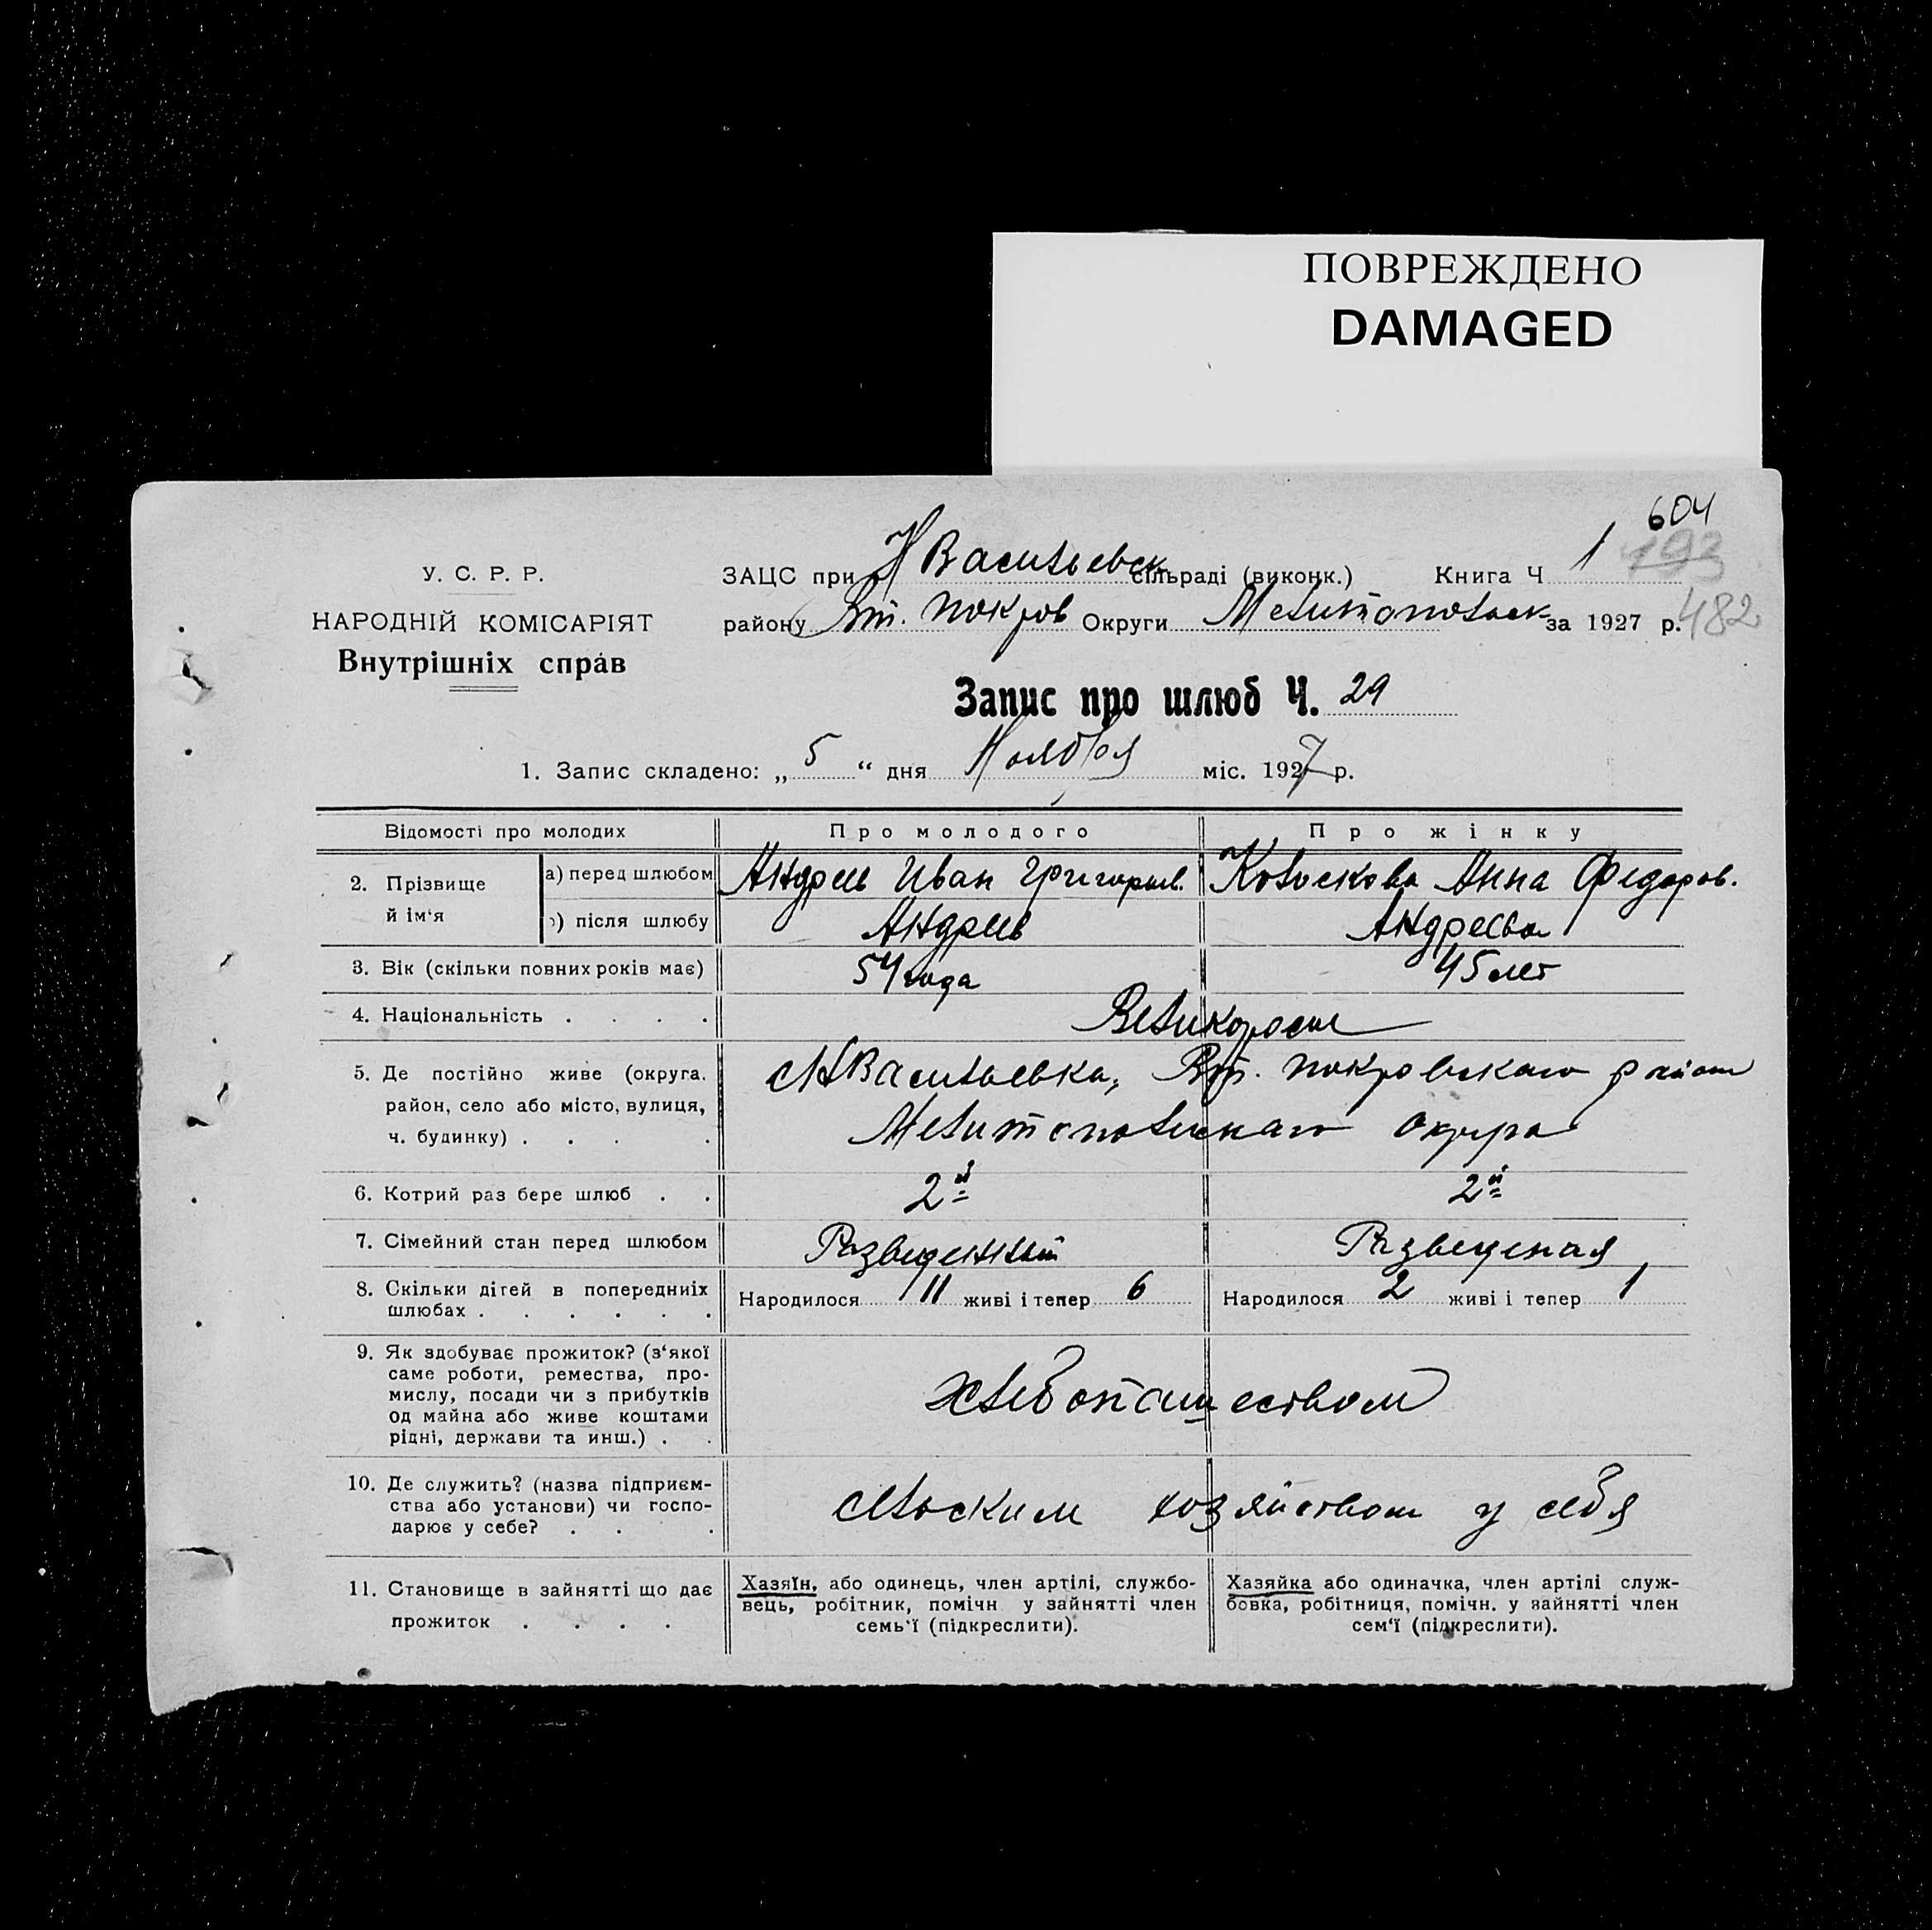 ПОВРЕЖДЕНО
DAMAGED
604
193
У. С. Р. Р.
НАРОДНІЙ КОМІСАРІЯТ
Внутрішніх справ
ЗАЦС при НВасильевск сільраді (виконк.) Книга Ч 1
району Вт. Покров Округи Мелитопольск за 1927 р. 482
Запис про шлюб Ч. 29
1. Запис складено: „ 5 “ дня Ноября міс. 1927 р.
Відомості про молодих Про молодого Про жінку
2. Прізвище й ім‘я а) перед шлюбом Андреев Иван Григорьев. Колоскова Анна Федоров.
) після шлюбу Андреев Андреева
3. Вік (скільки повних років має) 54 года 45 лет
4. Національність . . . . Великороси
5. Де постійно живе (округа, НВасильевка, Вт. Покровскаго района
район, село або місто, вулиця, Мелитопольскаго округа
ч. будинку) . . . .
6. Котрий раз бере шлюб . . 2й 2й
7. Сімейний стан перед шлюбом Разведенный Разведеная
8. Скільки дітей в попередниіх Народилося 11 живі і тепер 6 Народилося 2 живі і тепер 1
шлюбах . . . . . .
9. Як здобуває прожиток? (з‘якої
саме роботи, ремества, про-
мислу, посади чи з прибутків хлебопашеством
од майна або живе коштами
рідні, держави та инш.) . .
10. Де служить? (назва підприєм-
ства або установи) чи госпо- сельским хозяйством у себя
дарює у себе? . . .
11. Становище в зайнятті що дає Хазяїн, або одинець, член артілі, службо- Хазяйка або одиначка, член артілі служ-
прожиток . . . . вець, робітник, помічн у зайнятті член бовка, робітниця, помічн. у зайнятті член
семь‘ї (підкреслити). сем‘ї (підкреслити).